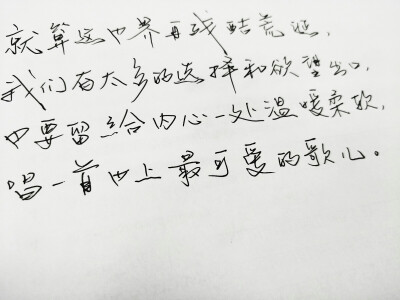 就算这世界再残酷荒诞,
我们有太多的选择和欲望出口,
也要留给内心一处温暖柔软,
唱一首世上最可爱的歌儿。